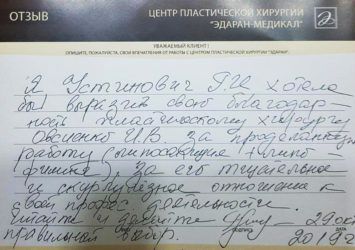 ОТЗЫВ
ЦЕНТР ПЛАСТИЧЕСКОЙ ХИРУРГИИ
"ЭДАРАН-МЕДИКАЛ"
УВАЖАЕМЫЙ КЛИЕНТ!
ОПИШИТЕ, ПОЖАЛУЙСТА, СВОИ ВПЕЧАТЛЕНИЯ ОТ РАБОТЫ С ЦЕНТРОМ ПЛАСТИЧЕСКОЙ ХИРУРГИИ "ЭДАРАН".
Я Устинович Г.И хотела
бы выразить свою благодар-
ность пластическому хирургу
Овсиенко И.В. за проделанную
работу (липосакция +
), за его тщательное
и скурпулезное отношение к
своей професс. деятельности.
и делайте 29
правильный выбор. 2019